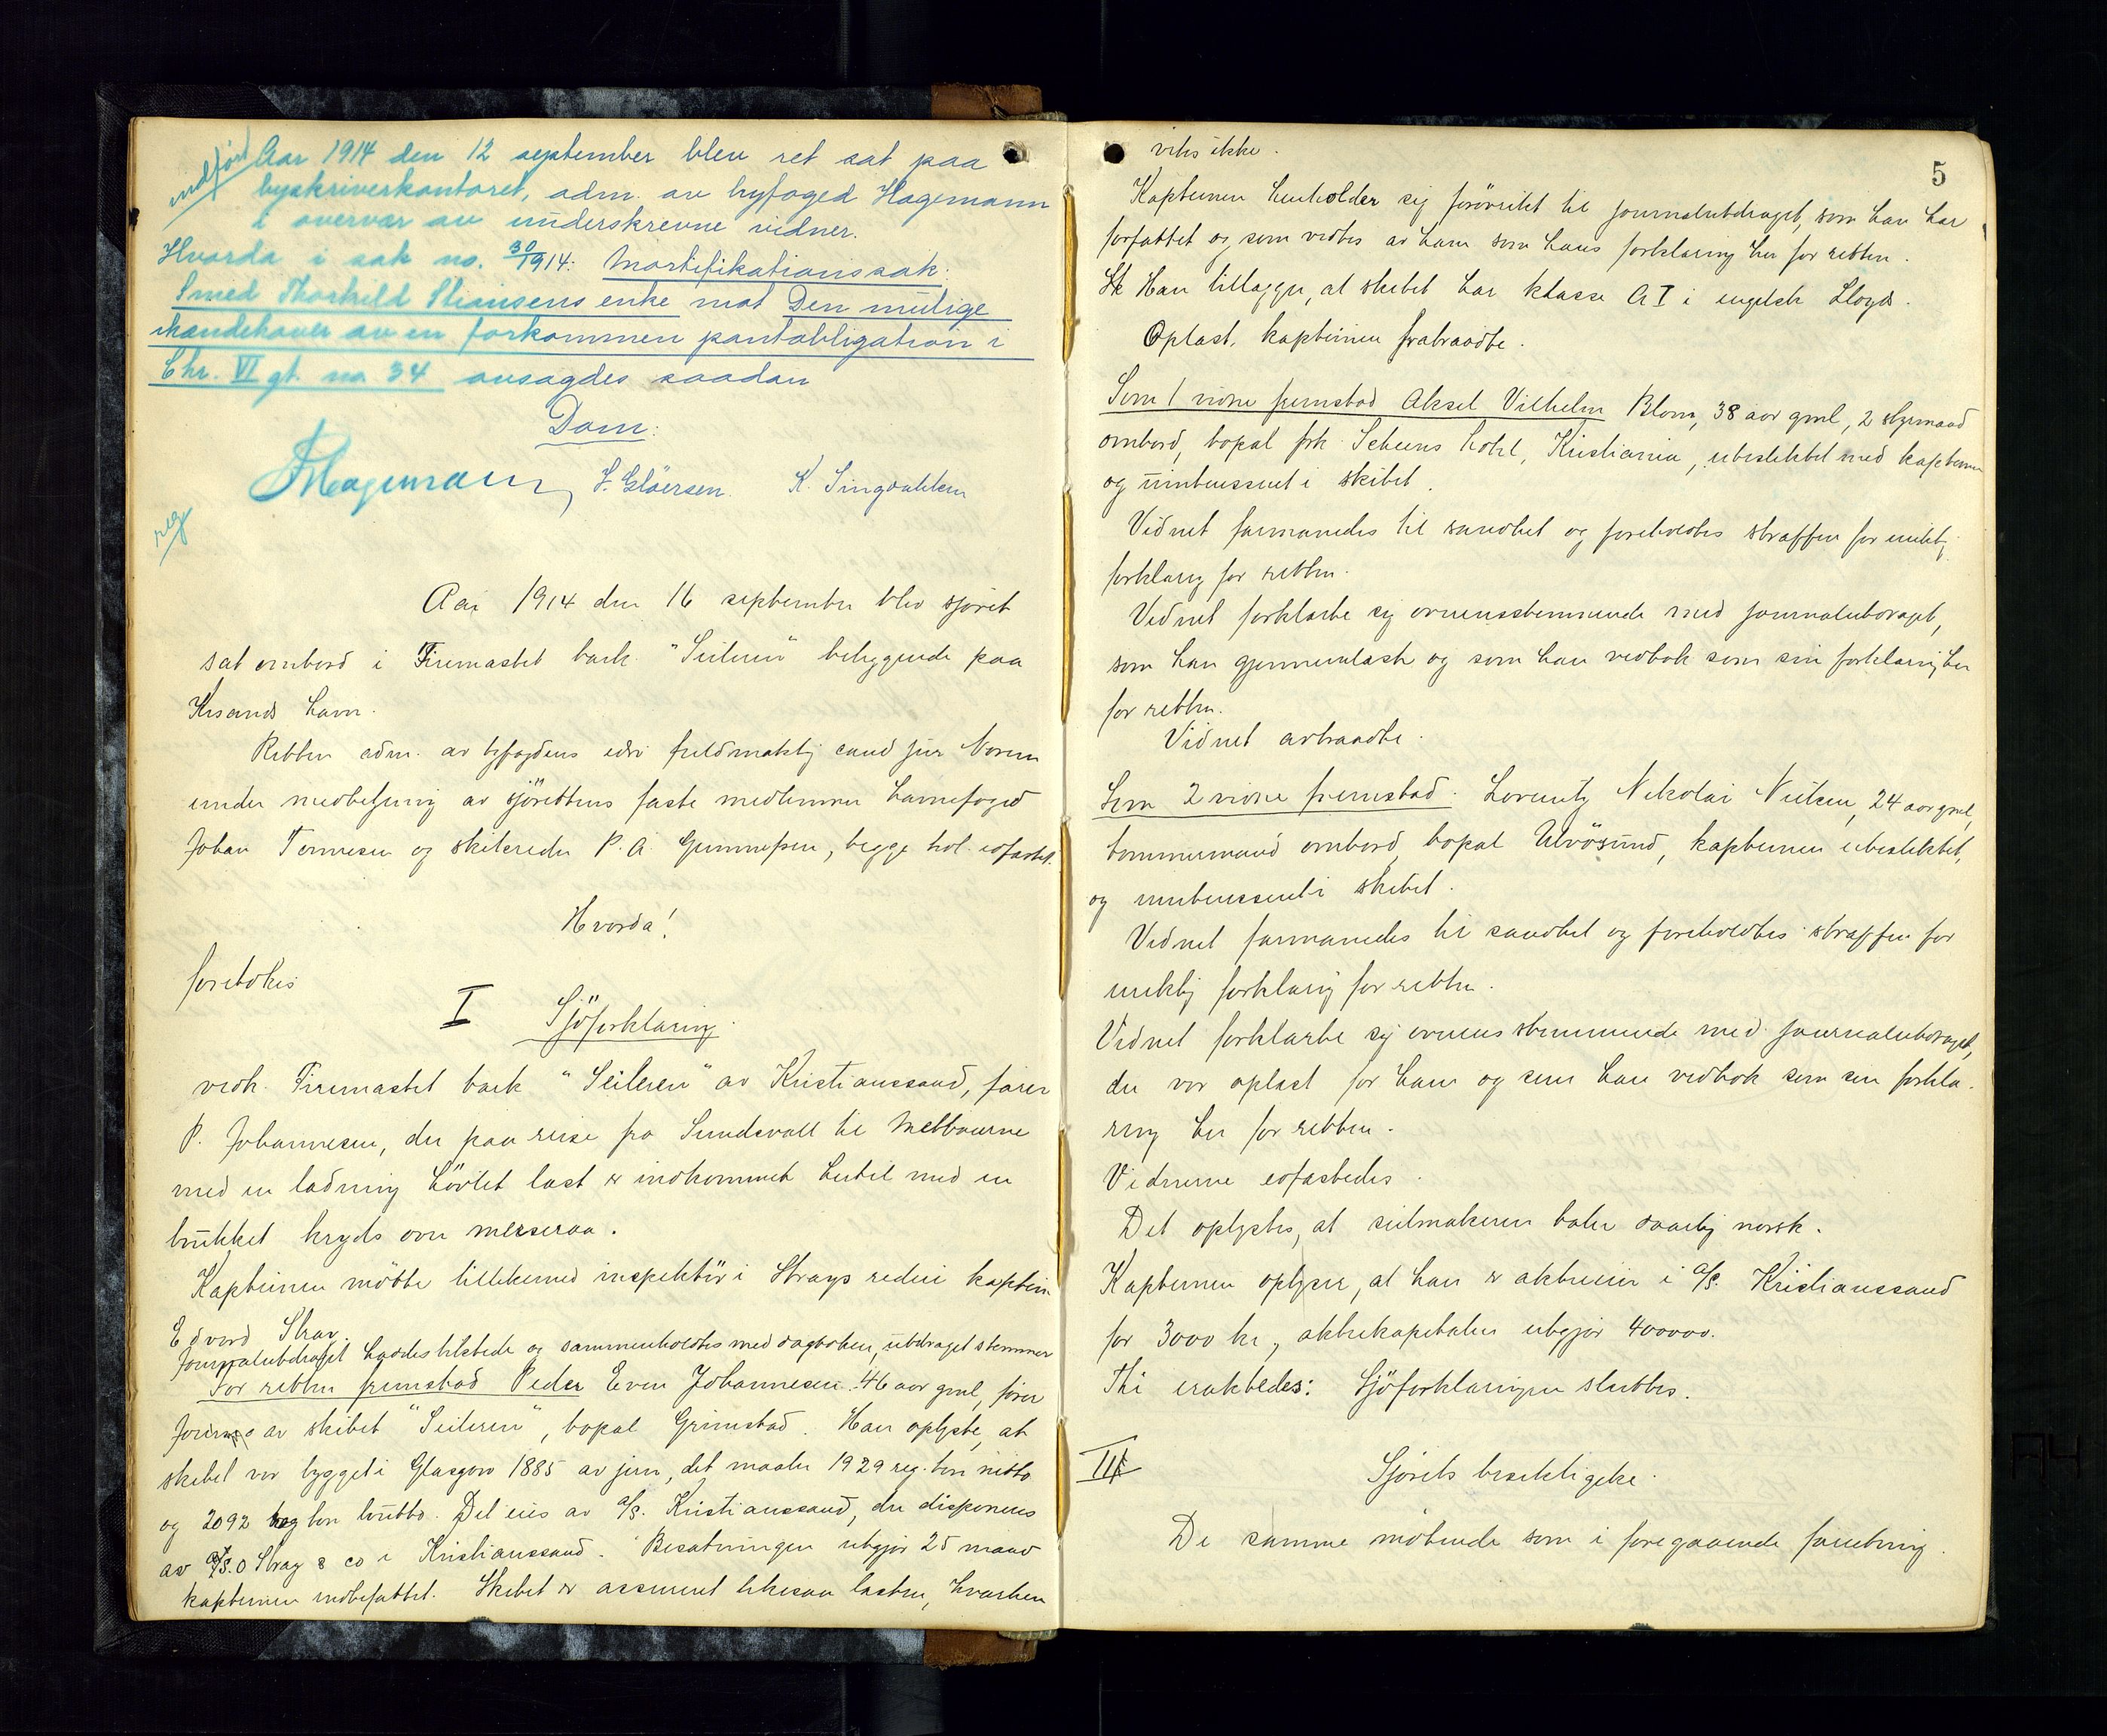 indført
Aar 1914 den 12 september blev ret sat paa
byskriverkontoret, adm. av byfoged Hagemann
i overvær av underskrevne vidner.
Hvorda i sak no. 30/1914: Mortifikationssak:
Smed Thorkild Stiansens enke mot Den mulige
ihændehaver av en forkommen pantobligation i
Chr. VI gt. no 34 avsagdes saadan
Dom:
Hagemann S. Gløersen K. Singdahlsen
reg
Aar 1914 den 16 september blev sjøret
sat ombord i Firemastet bark "Seileren" beliggende paa
Krsands havn.
Retten adm. av byfogdens edsv fuldmæktig cand jur Norem
under medbetjening av sjörettens faste medlemmer havnefoged
Johan Tønnesen og skibsreder P. A. Gunnufsen, begge hvl. edfæstet.
Hvorda!
foretokes
I Sjöforklaring.
vedk. Firemastet bark "Seileren" av Kristianssand, fører
P. Johannesen, der paa reise fra Sundsvall til Melbourne
med en ladning hövlet last er indkommet hertil med en
brukket kryds övre merseraa.
Kapteinen mötte tillikemed inspektör i Strays rederi kaptein
Edvard Stray.
Journalutdraget havdes tilstede og sammenholdtes med dagboken, utdraget stemmer
For retten fremstod Peder Even Johannesen 46 aar gml, fører
av skibet "Seileren", bopæl Grimstad. Han oplyste, at
skibet var bygget i Glasgow 1885 av jern, det maaler 1929 reg. ton netto
og 2092 reg ton brutto. Det eies av A/S. Kristianssand, der disponeres
av S. O Stray & co i Kristianssand. Besætningen utgjør 25 mand
kapteinen indbefattet. Skibet er assureret likesaa lasten, hvorhen
5
vites ikke.
Kapteinen henholder sig forøvrikt til journalutdraget, som han har
forfattet og som vedtes av ham som hans forklaring her for retten.
Han tillægger, at skibet har klasse A I i engelsk Lloyds.
Oplæst, kapteinen fratraadte.
Som 1 vidne fremstod Aksel Vilhelm Blom, 38 aar gml, 2 styrmand
ombord, bopæl frk Scheens hotel, Kristiania, ubeslektet med kapteinen
og uinteressert i skibet.
Vidnet formanedes til sandhet og foreholdtes straffen for uriktig
forklaring for retten.
Vidnet forklarte sig overensstemmende med journalutdraget,
som han gjennemlæste og som han vedtok som sin forklaring her
for retten.
Vidnet avtraadte.
Som 2 vidne fremstod. Lorentz Nikolai Nielsen, 24 aar gml,
tømmermand ombord, bopæl Ulvösund, kapteinen ubeslektet,
og uinteressert i skibet.
Vidnet formanedes til sandhet og foreholdtes straffen for
uriktig forklaring for retten.
Vidnet forklarte sig overensstemmende med journalutdraget,
der var oplæst for ham og som han vedtok som sin forkla-
ring her for retten.
Vidnerne edfæstedes.
Det oplystes, at seilmakeren taler daarlig norsk.
Kapteinen oplyser, at han er aktieeier i A/S. Kristianssand
for 3000 kr, aktiekapitalen utgjør 400000.
Thi eraktedes: Sjöforklaringen sluttes.
II Sjørets besiktigelse.
De samme mötende som i foregaaende forretning.